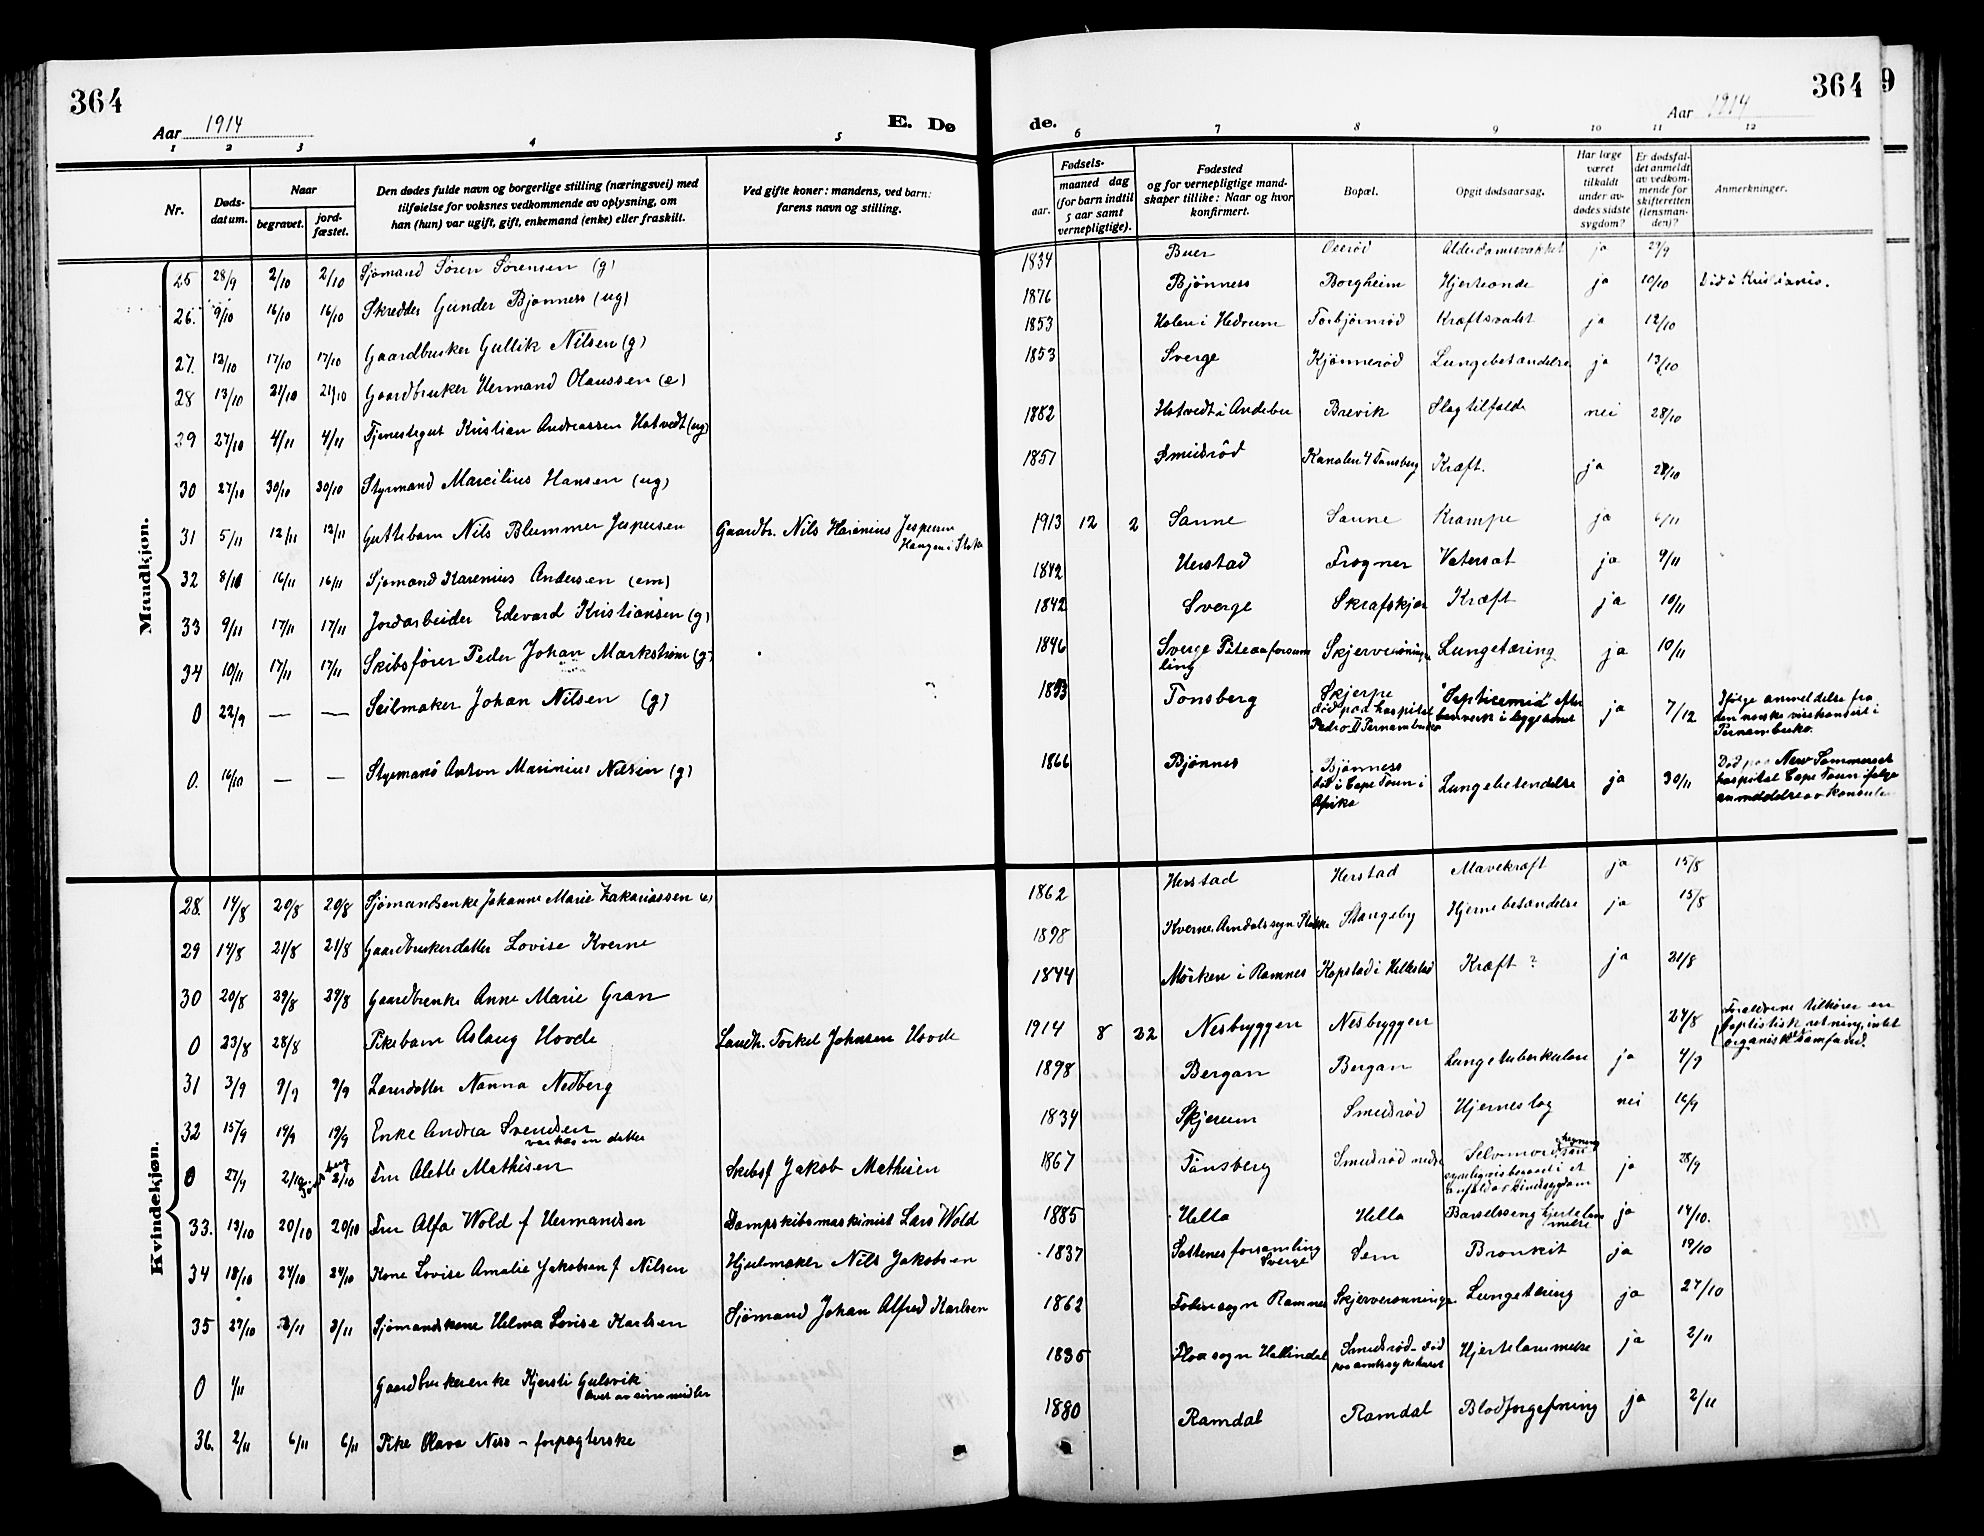 364
Aar 1914
E. Dø
1 2 3 4 5
Nr.
Døds-
datum.
Naar
begravet.
jord-
fæstet.
Den dødes fulde navn og borgerlige stilling (næringsvei) med
tilføielse for voksnes vedkommende av oplysning, om
han (hun) var ugift, gift, enkemand (enke) eller fraskilt.
Ved gifte koner: mandens, ved barn:
farens navn og stilling.
Mandkjøn.
25 28/9 2/10 2/10 Sjømand Søren Sørensen (g)
26. 9/10 16/10 16/10 Skrædder Gunder Bjønness (ug)
27. 12/10 17/10 17/10 Gaardbruker Gullik Nilsen (g)
28 13/10 21/10 21/10 Gaardbruker Hermand Olaussen (e)
29 27/10 4/11 4/11 Tjenestegut Kristian Andreassen Hotvedt (ug)
30 27/10 30/10 30/10 Styrmand Marcilius Hansen (ug)
31 5/11 12/11 12/11 Guttebarn Nils Blummer Jespersen Gaardbr. Nils Harenius Jespersen
Haugen i Stokke
32 8/11 16/11 16/11 Sjømand Karenius Andersen (em)
33 9/11 17/11 17/11 Jordarbeider Edevard Kristiansen (g)
34 10/11 17/11 17/11 Skibsfører Peder Johan Markstrøm (g)
0 22/9 — — Seilmaker Johan Nilsen (g)
0. 16/10 — — Styrmand Anton Marinius Nilsen (g)
Kvindekjøn.
28. 14/8 20/8 20/8 Sjømandsenke Johanne Marie Zakariassen (e)
29 14/8 21/8 21/8 Gaardbrukerdatter Lovise Kverne
30 20/8 29/8 29/8 Gaardbrenke Anne Marie Gran
0 23/8 28/8 Pikebarn Aslaug Hovde Landh. Torkel Johnsen Hovde
31 3/9 9/9 9/9 Lærerdatter Nanna Nedberg
32 15/9 19/9 19/9 Enke Andrea Svendsen
var hos en datter
0 27/9 2/10 2/10 Fru Alette Mathisen Skibsf Jakob Mathisen
33. 13/10 20/10 20/10 Fru Alfa Wold f Hermandsen Dampskibsmaskinist Lars Wold
34 18/10 24/10 24/10 Kone Lovise Amalie Jakobsen f Nilsen Hjulmaker Nils Jakobsen
35 27/10 3/11 3/11 Sjømandskone Helma Lovise Karlsen Sjømand Johan Alfred Karlsen
0 1/11 Gaardbrukerenke Kjersti Gulsvik
levet av sine midler
36. 2/11 6/11 6/11 Pike Olava Ness - forpagterske
364
Aar 1914
de.
6 7 8 9 10 11 12
Fødsels-
aar.
maaned dag
(for barn indtil
5 aar samt
vernepligtige).
Fødested
og for vernepligtige mand-
skaper tillike: Naar og hvor
konfirmert.
Bopæl.
Opgit dødsaarsag.
Har læge
været
tilkaldt
under av-
dødes sidste
sygdom?
Er dødsfal-
det anmeldt
av vedkom-
mende for
skifteretten
(lensman-
den)?
Anmerkninger.
1834 Buer Ollerød Alderdomssvakhet ja 29/9
1876 Bjønness Borgheim Hjerteonde ja 10/10 Død i Kristiania.
1853 Holen i Hedrum Torbjørnrød Kræftsvulst ja 12/10
1853 Sverge Kjønnerød Lungebetændelse ja 13/10
1882 Hotvedt i Andebu Brevik Slagtilfælde nei 28/10
1857 Smidsrød Kanalen 4 Tønsberg Kræft. ja 28/10
1913 12 2 Sanne Sanne Krampe ja 6/11
1842 Herstad Frogner Vatersot ja 9/11
1842 Sverge Skrafskjær Kræft ja 10/11
1846 Sverge Piteaa forsam
ling Skjerveøningen Lungetæring ja 10/11
1853 Tønsberg Skjerpe
død paa hospital
Pedro II Pernambuco "Septicemia" efter
benverk i lyggebenet ja 7/12 Ifølge anmeldelse fra
den norske visekonsul i
Pernambuko.
1866 Bjønnes Bjønness
død i Cape Town i
Afrika Lungebetendelse ja 30/11 Død paa New Sommerset
hospital Cape Town ifølge
anmeldelse av konsulen
1862 Herstad Herstad Mavekræft ja 15/8
1898 Kverne Arndals sogn Stokke Stangeby Hjernebetændelse ja 15/8
1844 Mørken i Ramnes Kopstad i Hillestad Kræft? ja 21/8
1914 8 22 Nesbryggen Nesbryggen 24/8 Forældrene tilhører en
baptistisk retning, intet
organisk samfund.
1898 Bergan Bergan Lungetuberkulose ja 4/9
1834 Skjerum Smidsrød Hjerneslag nei 16/9
1867 Tønsberg Smidsrød nedre Selvmord
synligvis beraaet i et
anfald av sindssygdom ja 28/9
1885 Hella Hella Barselseng hjertelam
melse ja 14/10.
1837 Sottenes forsamling
Sverge Sem Bronkit ja 19/10
1862 Fosen sogn Ramnes Skjerveøningen Lungetæring ja 27/10
1835 Floa sogn Hallindal Smidsrød - død
paa amtssykehuset Hjertelammelse ja 2/11
1880 Ramdal Ramdal Blodforgiftning ja 2/11